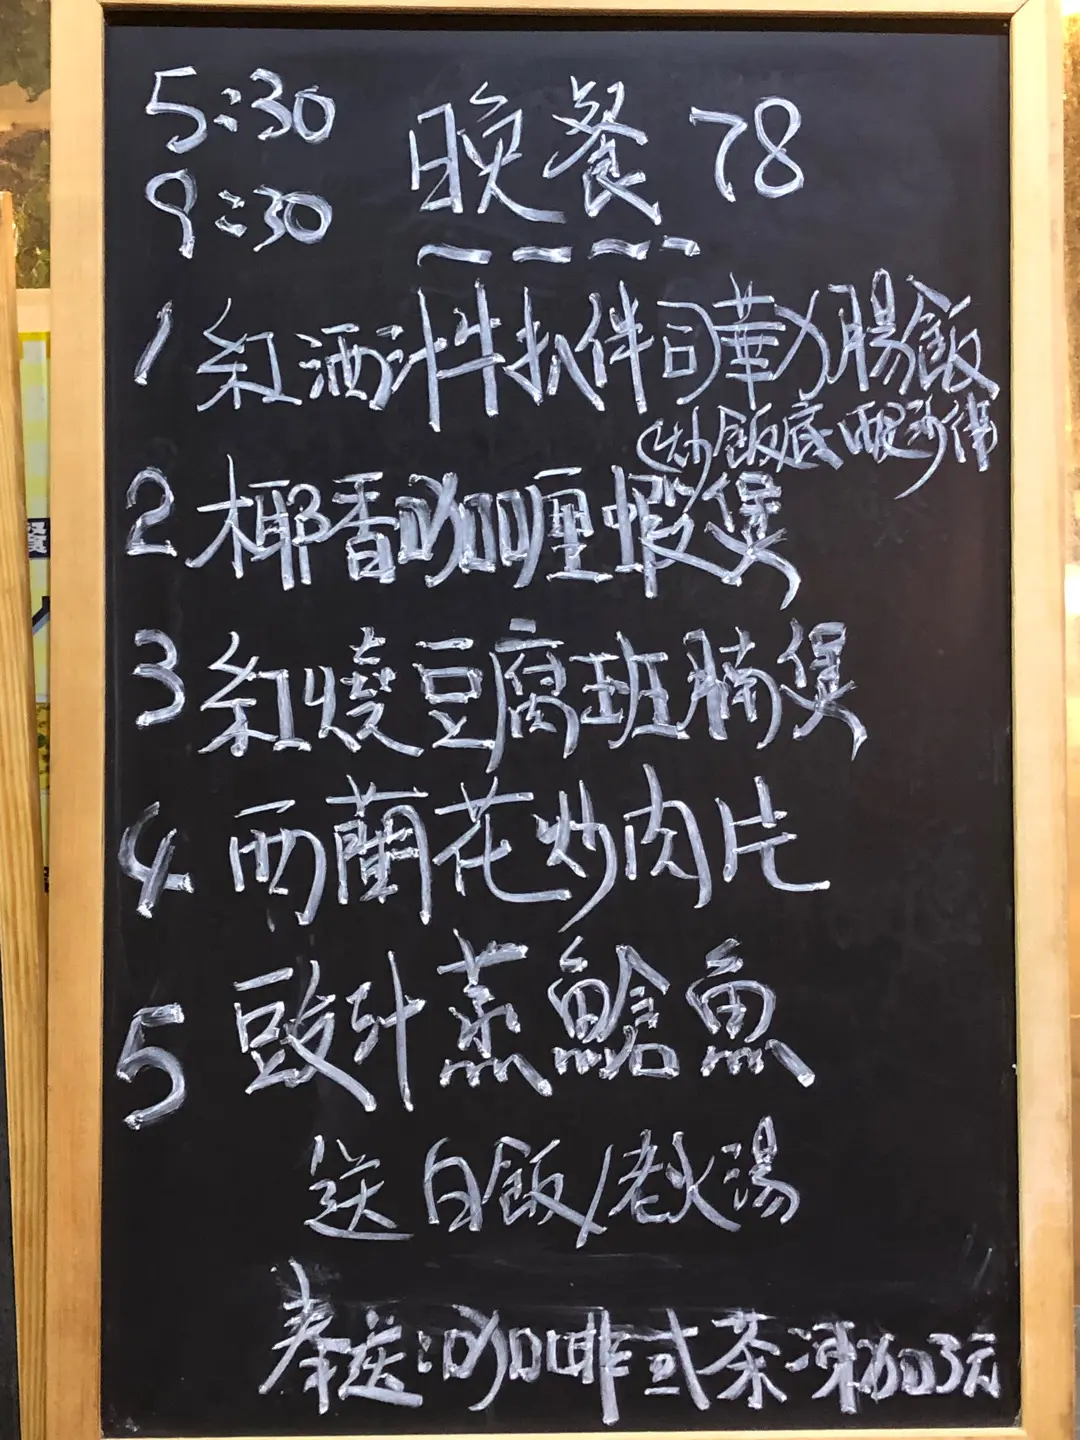 5:30
9:30
晚餐 78
1 紅酒汁牛扒伴司華力腸飯
(炒飯底 配沙律
2 椰香咖喱蝦煲
3 紅燒豆腐班腩煲
4 西蘭花炒肉片
5 豉汁蒸鯧魚
送白飯/老火湯
奉送:咖啡或茶 凍加3元